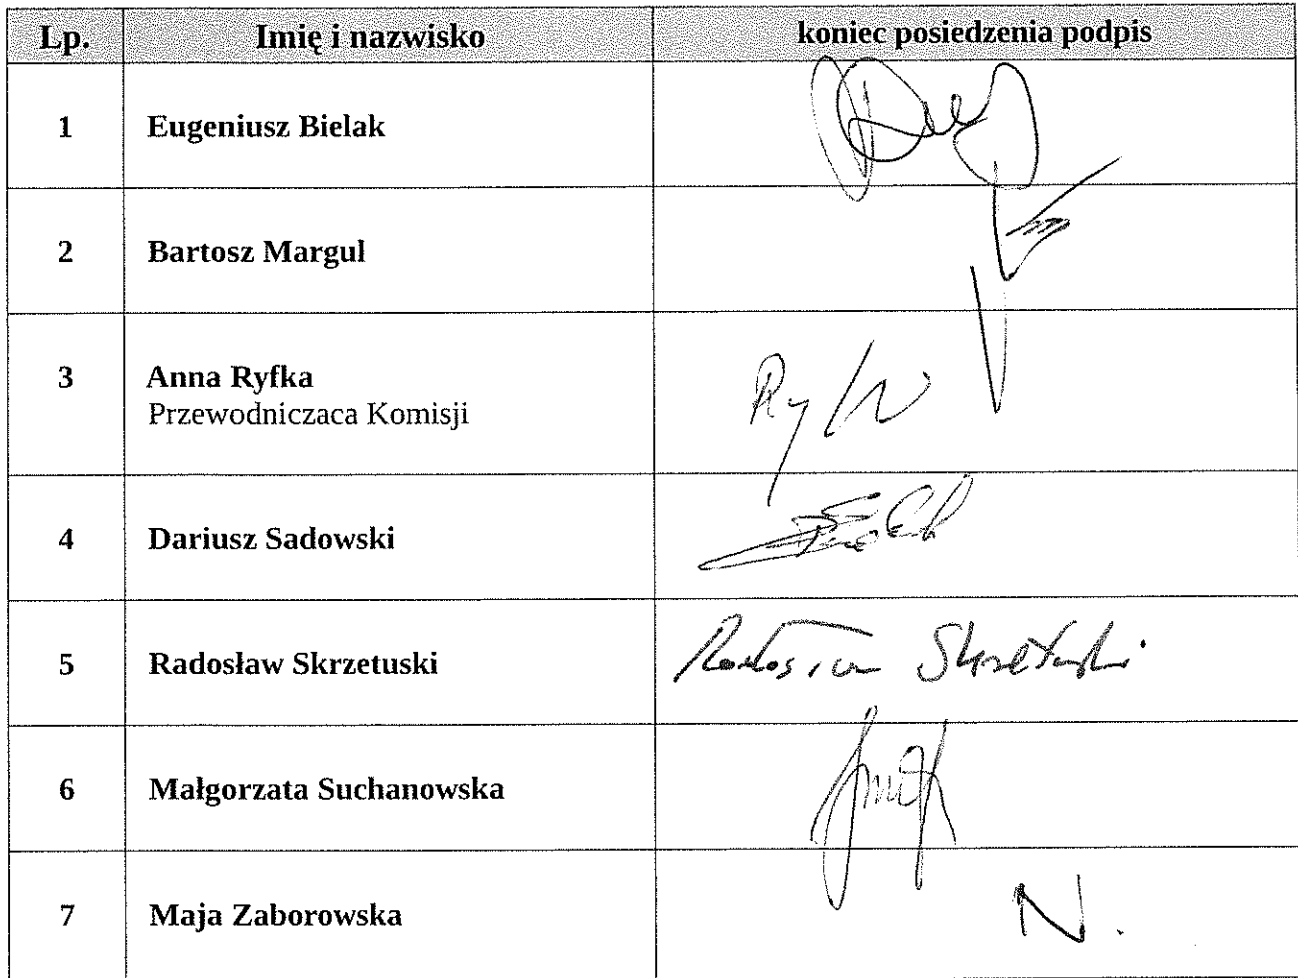 Lp. Imię i nazwisko koniec posiedzenia podpis
1 Eugeniusz Bielak
2 Bartosz Margul
3 Anna Ryfka
Przewodniczaca Komisji
4 Dariusz Sadowski
5 Radosław Skrzetuski Radosław Skrzetuski
6 Małgorzata Suchanowska
7 Maja Zaborowska N.